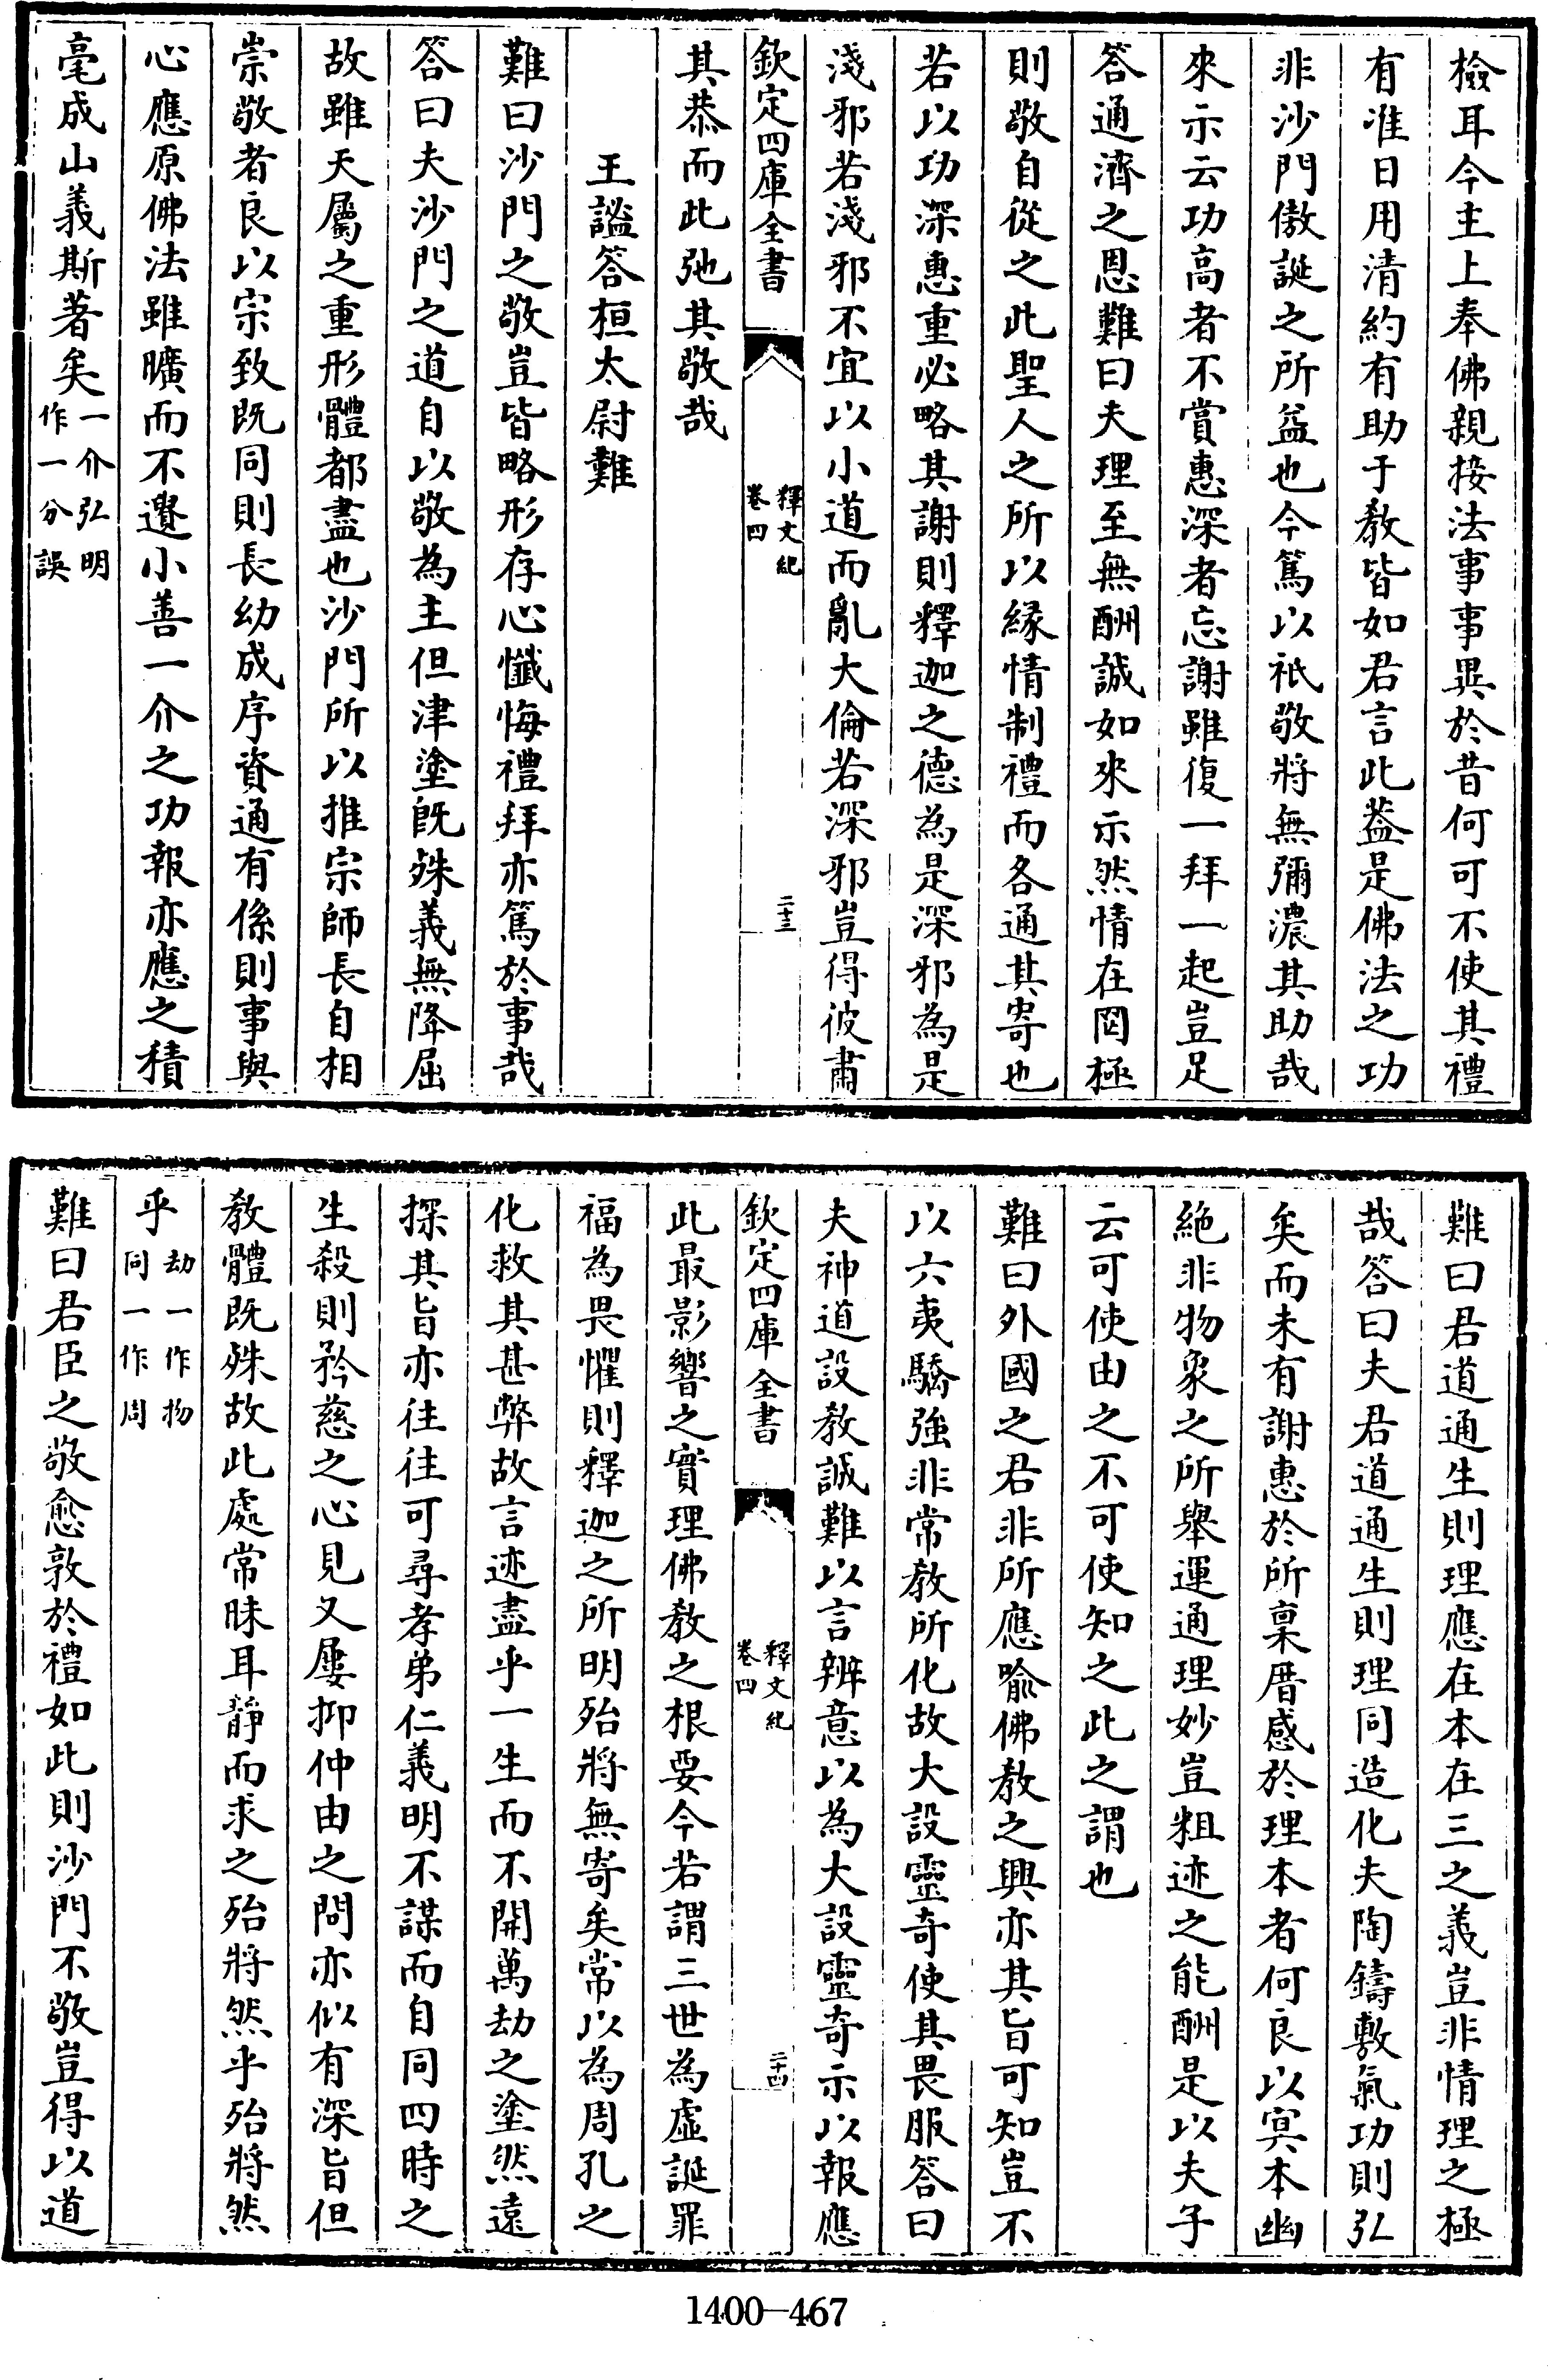 檢耳今主上奉佛親接法事事異於昔何可不使其禮
有准日用清約有助于教皆如君言此葢是佛法之功
非沙門傲誕之所益也今篤以祇敬將無彌濃其助哉
來示云功高者不賞惠深者忘謝雖復一拜一起豈足
答通濟之恩難曰夫理至無酬誠如來示然情在罔極
則敬自從之此聖人之所以緣情制禮而各通其寄也
若以功深惠重必略其謝則釋迦之德為是深邪為是
淺邪若淺邪不宜以小道而亂大倫若深邪豈得彼肅
欽定四庫全書
釋文紀
卷四
二十三
其恭而此弛其敬哉
王謐答桓太尉難
難曰沙門之敬豈皆略形存心懺悔禮拜亦篤於事哉
答曰夫沙門之道自以敬為主但津塗既殊義無降屈
故雖天屬之重形體都盡也沙門所以推宗師長自相
崇敬者良以宗致既同則長幼成序資通有係則事與
心應原佛法雖曠而不遺小善一介之功報亦應之積
毫成山義斯著矣一介弘明
作一分誤
難曰君道通生則理應在本在三之義豈非情理之極
哉答曰夫君道通生則理同造化夫陶鑄敷氣功則弘
矣而未有謝惠於所稟厝感於理本者何良以冥本幽
絕非物象之所舉運通理妙豈粗迹之能酬是以夫子
云可使由之不可使知之此之謂也
難曰外國之君非所應喻佛教之興亦其旨可知豈不
以六夷驕強非常教所化故大設靈奇使其畏服答曰
夫神道設教誠難以言辨意以為大設靈奇示以報應
欽定四庫全書
釋文紀
卷四
二十四
此最影響之實理佛教之根要今若謂三世為虛誕罪
福為畏懼則釋迦之所明殆將無寄矣常以為周孔之
化救其甚弊故言迹盡乎一生而不開萬劫之塗然遠
探其旨亦往往可尋孝弟仁義明不謀而自同四時之
生殺則矜慈之心見又屢抑仲由之問亦似有深旨但
教體既殊故此處常昧耳靜而求之殆將然乎殆將然
乎劫一作物
同一作周
難曰君臣之敬愈敦於禮如此則沙門不敬豈得以道
1400—467